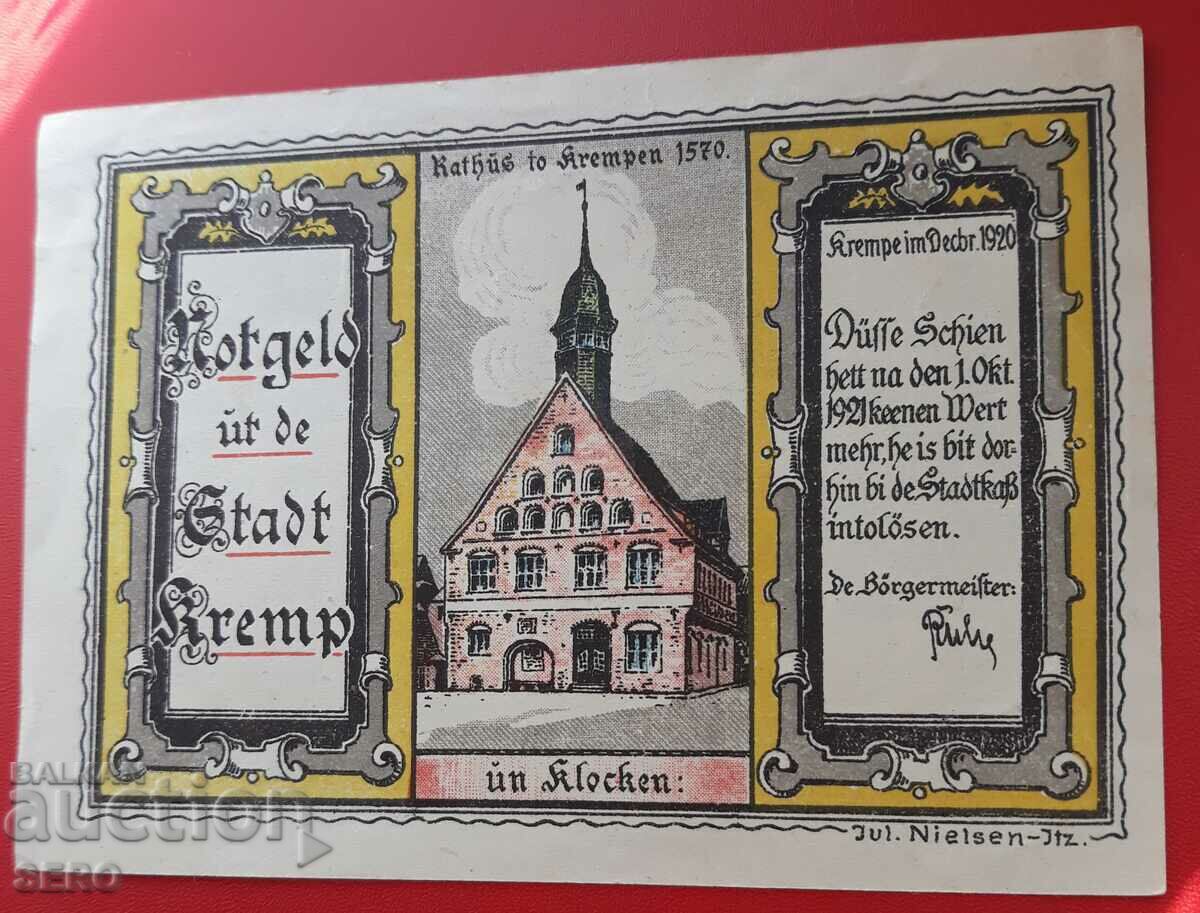 Rathüs to Krempen 1570.
Notgeld
üt de
Stadt
Kremp
ün Klocken:
Krempe im Decbr. 1920
Düsse Schien
hett na den 1. Okt.
1921 keenen Wert
mehr, he is bit dor-
hin bi de Stadtkaß
intolösen.
De Börgermeister:
Jul. Nielsen-Itz.
BALKAN
auction
SERO